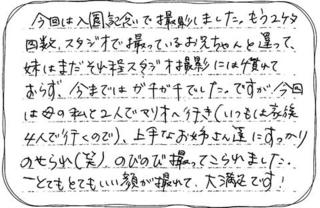 今回は入園記念で撮影しました。もう2ケタ
回数、スタジオで撮っているお兄ちゃんと違って、
妹はまだそれ程スタジオ撮影には慣れて
おらず、今まではガチガチでした。ですが、今回
は母の私と2人でマリオへ行き(いつもは家族
4人で行くので)、上手なお姉さん達にすっかり
のせられ(笑)のびのび撮ってこられました。
とてもとてもいい顔が撮れて、大満足です!